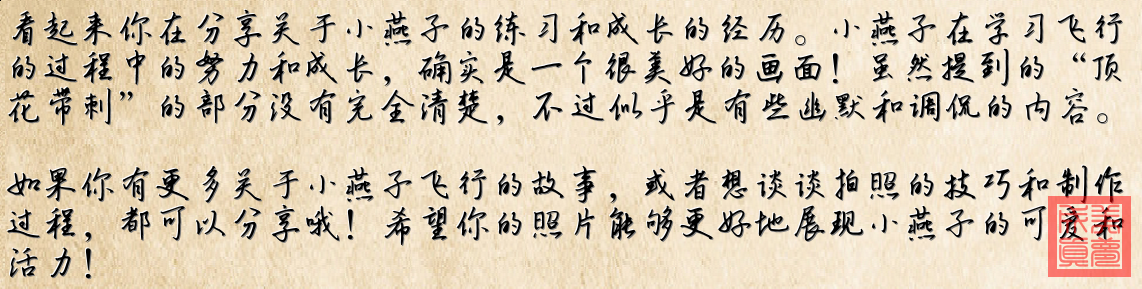 看起来你在分享关于小燕子的练习和成长的经历。小燕子在学习飞行
的过程中的努力和成长，确实是一个很美好的画面！虽然提到的“顶
花带刺”的部分没有完全清楚，不过似乎是有些幽默和调侃的内容。
如果你有更多关于小燕子飞行的故事，或者想谈谈拍照的技巧和制作
过程，都可以分享哦！希望你的照片能够更好地展现小燕子的可爱和
活力！